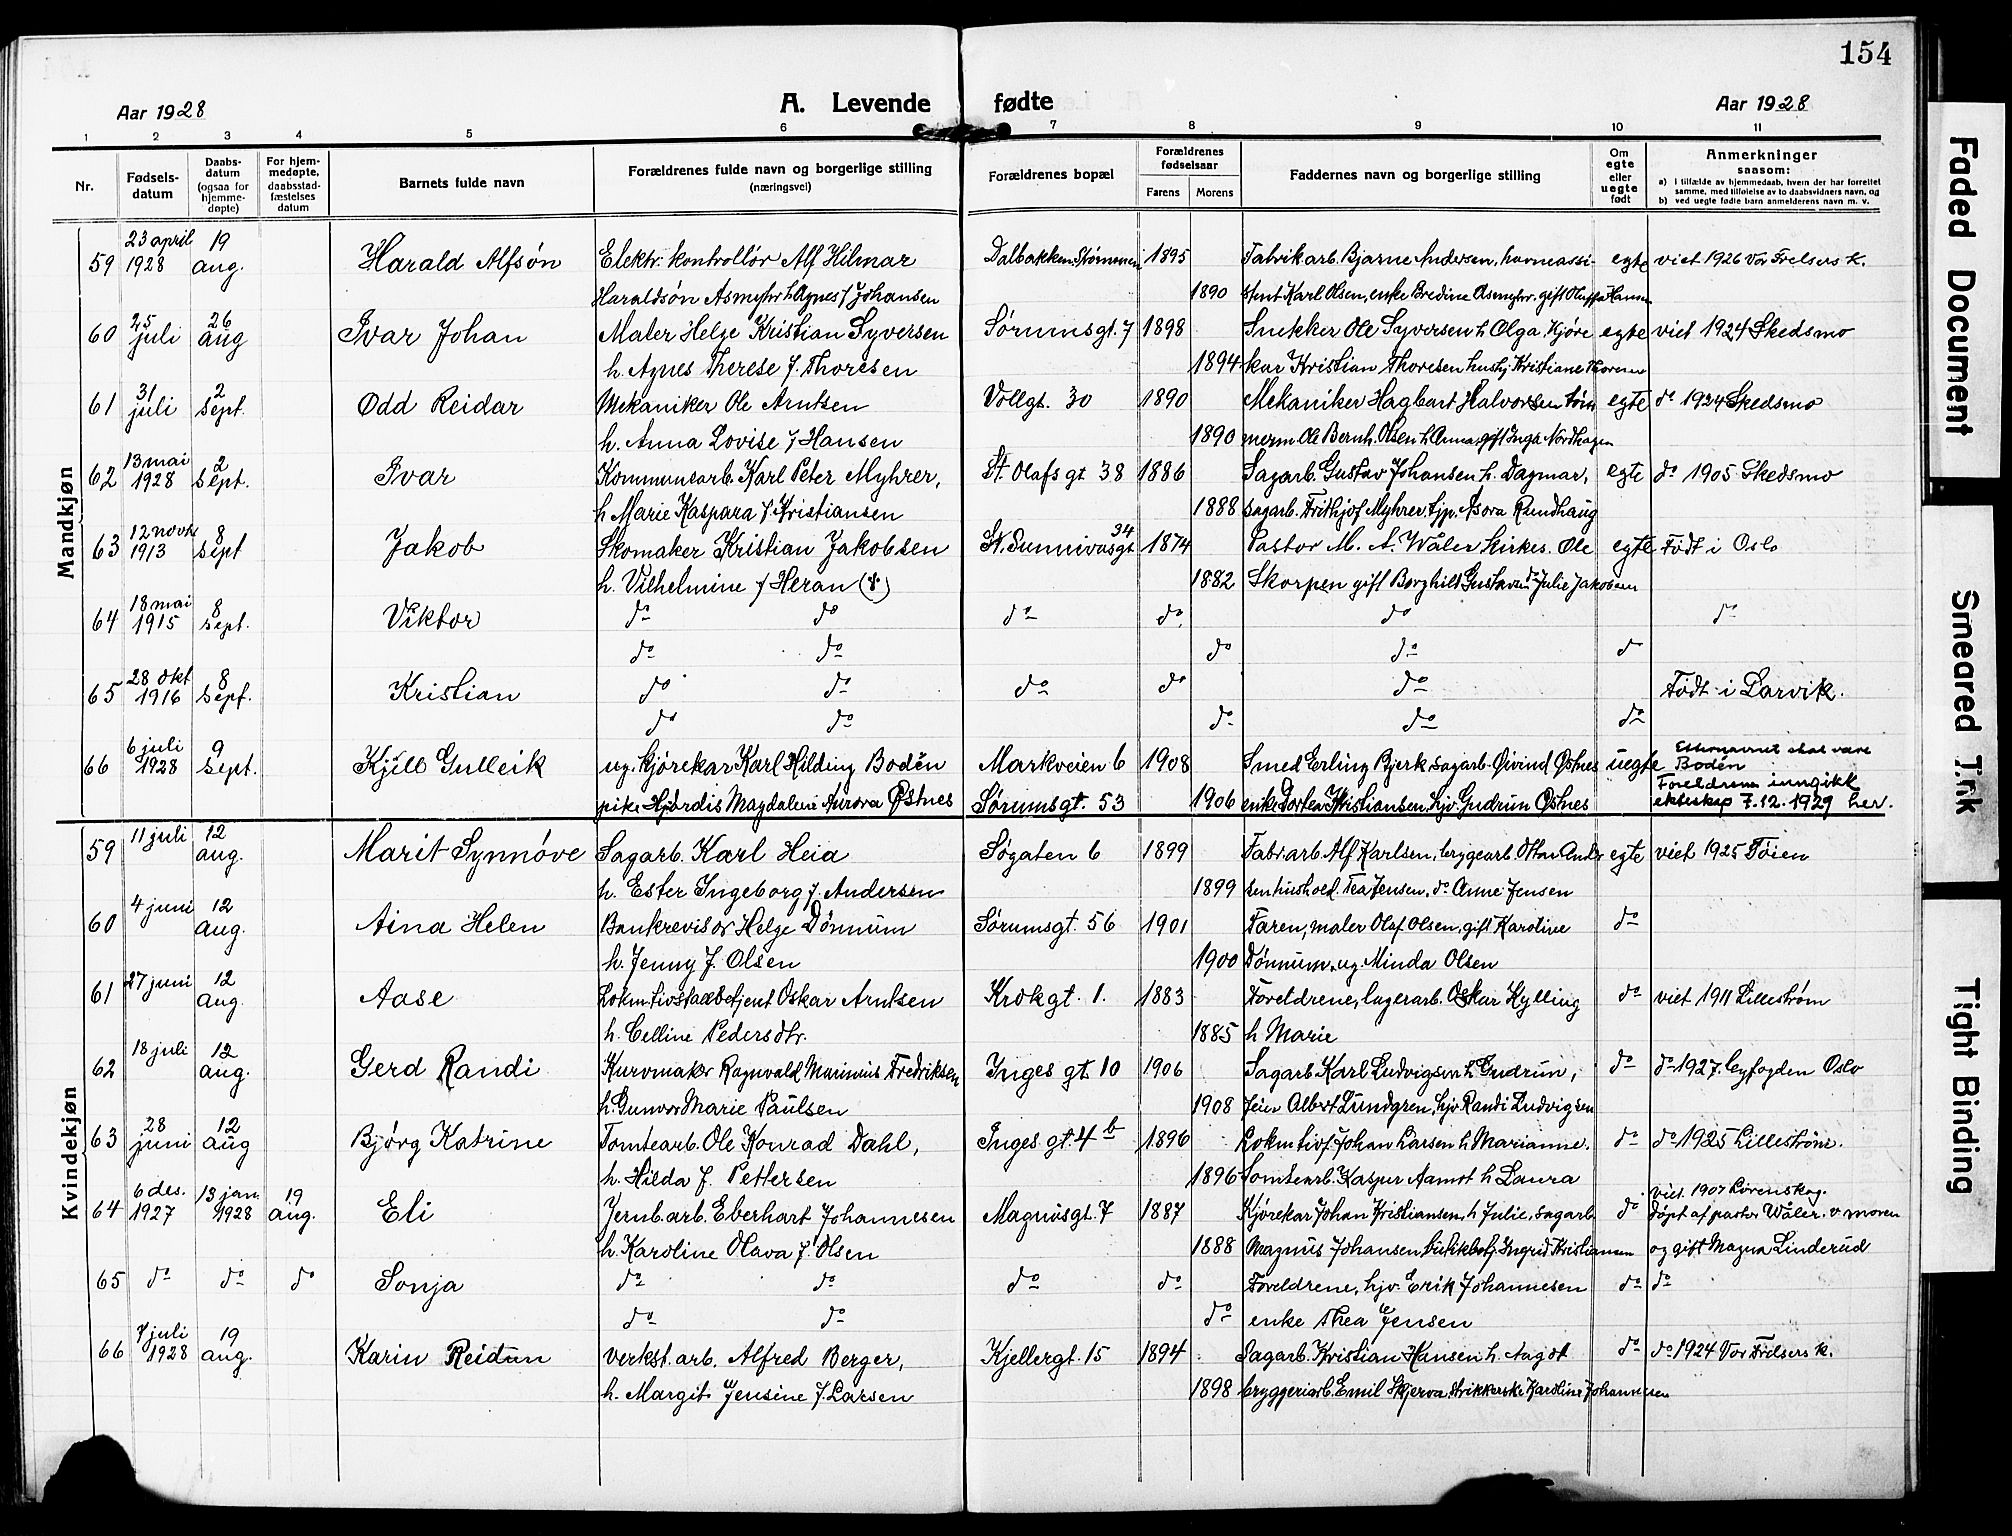 154
Aar 1928
A. Levende fødte
Aar 1928
1 2 3 4 5 6 7 8 9 10 11
Nr.
Fødsels-
datum
Daabs-
datum
(ogsaa for
hjemme-
døpte)
For hjem-
medøpte,
daabsstad-
fæstelses
datum
Barnets fulde navn
Forældrenes fulde navn og borgerlige stilling
(næringsvei)
Forældrenes bopæl
Forældrenes
fødselsaar
Farens Morens
Faddernes navn og borgerlige stilling
Om
egte
eller
uegte
født
Anmerkninger
saasom:
a) I tilfælde av hjemmedaab, hvem der har forrettet
samme, med tilføielse av to daabsvidners navn, og
b) ved uegte fødte barn anmelderens navn m. v.
Mandkjøn
23 april 19
59 1928 aug. Harald Alfsøn Elektr. kontrollør Alf Hilmar Dalbakken. Strømmen 1895 Fabrikarb. Bjarne Andersen, havneassi- egte viet 1926 Vor Frelsers k.
Haraldsøn Asmyhr h. Agnes f Johansen 1890 stent Karl Olsen, enke Bredine Asmyhr, gift Oluffa Hansen
25 26
60 juli aug Ivar Johan Maler Helge Kristian Syversen Sørumsgt. 7 1898 Snekker Ole Syversen h. Olga. Kjøre egte viet 1924 Skedsmo
h. Agnes Therese f. Thoresen 1894 kar Kristian Thoresen hushj. Kristiane Thoresen
31 2
61 juli sept. Odd Reidar Mekaniker Ole Arntsen Vollgt. 30 1890 Mekaniker Hagbart Halvorsen tøm egte do 1924 Skedsmo
h. Anna Lovise f Hansen 1890 merm. Ole Bernh. Olsen h. Anna, gift Inga Nordhagen
13 mai 2
62 1928 sept. Ivar Kommunearb. Karl Peter Myhrer, St. Olafs gt 38 1886 Sagarb. Gustav Johansen h. Dagmar, egte do 1905 Skedsmo
h Marie Kaspara f. Kristiansen 1888 sagarb. Frithjof Myhrer, tjp. Asora Rundhaug
12 novbr 8 34
63 1913 sept Jakob Skomaker Kristian Jakobsen St. Sunnivasgt 1874 Pastor M. A. Wåler kirkes. Ole egte Født i Oslo
h. Vilhelmine f Heran (†) 1882 Skorpen gift Borghild Gustavsen do Julie Jakobsen
18 mai 8
64 1915 sept. Viktor do do do do. do do
do do do do do
28 okt 8
65 1916 sept. Kristian do do do do do Født i Larvik.
do do do do do
6 juli 9 Etternavnet skal være
66 1928 sept. Kjell Gulleik ug. kjørekar Karl Hilding Bodén Markveien 6 1908 Smed Erling Bjerk, sagarb. Øivind Østnes uegte Bodén
Foreldrene inngikk
pike Hjørdis Magdalene Aurora Østnes Sørumsgt. 53 1906 enke Dorthea Kristiansen, hjv. Gudrun Østnes ekteskap 7.12.1929 her.
Kvindekjøn
11 juli 12
59 aug. Marit Synnøve Sagarb. Karl Heia Søgaten 6 1899 Fabr.arb. Alf Karlsen, bryggearb. Ottar Ander egte viet 1925 Tøien
h. Ester Ingeborg f. Andersen 1899 sen hushold. Tea Jensen, do Anne Jensen
4 juni 12
60 aug. Aina Helen Bankrevisor Helge Dønnum Sørumsgt. 56 1901 Faren, maler Olaf Olsen, gift Karoline do
h. Jenny f. Olsen 1900 Dønnum, ug. Minda Olsen
27 juni 12
61 aug. Aase Oskar Arntsen Krokgt. 1. 1883 Foreldrene, lagerarb. Oskar Kylling do viet 1911 Lillestrøm
h. Celline Pedersdtr. 1885 h Marie
18 juli 12
62 aug. Gerd Randi Kurvmaker Ragnvald Marinius Fredriksen Inges gt. 10 1906 Sagarb. Karl Ludvigsen h Gudrun, do do 1927. byfogden Oslo
h. Gunvor Marie Paulsen 1908 feier Albert Lundgren, hjv. Randi Ludvigsen
28 12
63 juni aug Bjørg Katrine Tomtearb. Ole Konrad Dahl, Inges gt. 4 b 1896 Lokmtivf. Johan Larsen h. Marianne. do do 1925 Lillestrøm.
h. Hilda f. Pettersen 1896 Tomtearb. Kaspar Aamot h Laura
6 des. 13 jan. 19 viet. 1907 Lørenskog.
64 1927 1928 aug. Eli Jernb.arb. Eberhart Johannesen Magnusgt. 7 1887 Kjørekar Johan Kristiansen, h Julie, sagarb do døpt af pastor Wåler. v. moren
h. Karoline Olava f. Olsen 1888 Magnus Johansen, butikkbetj. Ingrid Kristiansen og gift Magna Linderud
65 do do do Sonja do do do do Foreldrene, hjv. Erik Johannesen do do
do do do enke Thea Jensen
7 juli 19
66 1928 aug. Karin Reidun Verkst. arb. Alfred Berger, Kjellergt. 15 1894 Sagarb. Kristian Hansen h. Aagot do do 1924 Vor Frelsers k.
h. Margit Jensine f. Larsen 1898 bryggeriarb. Emil Skjerva, strikkerske Karoline Johannesen
Faded Document
Smeared Ink
Tight Binding